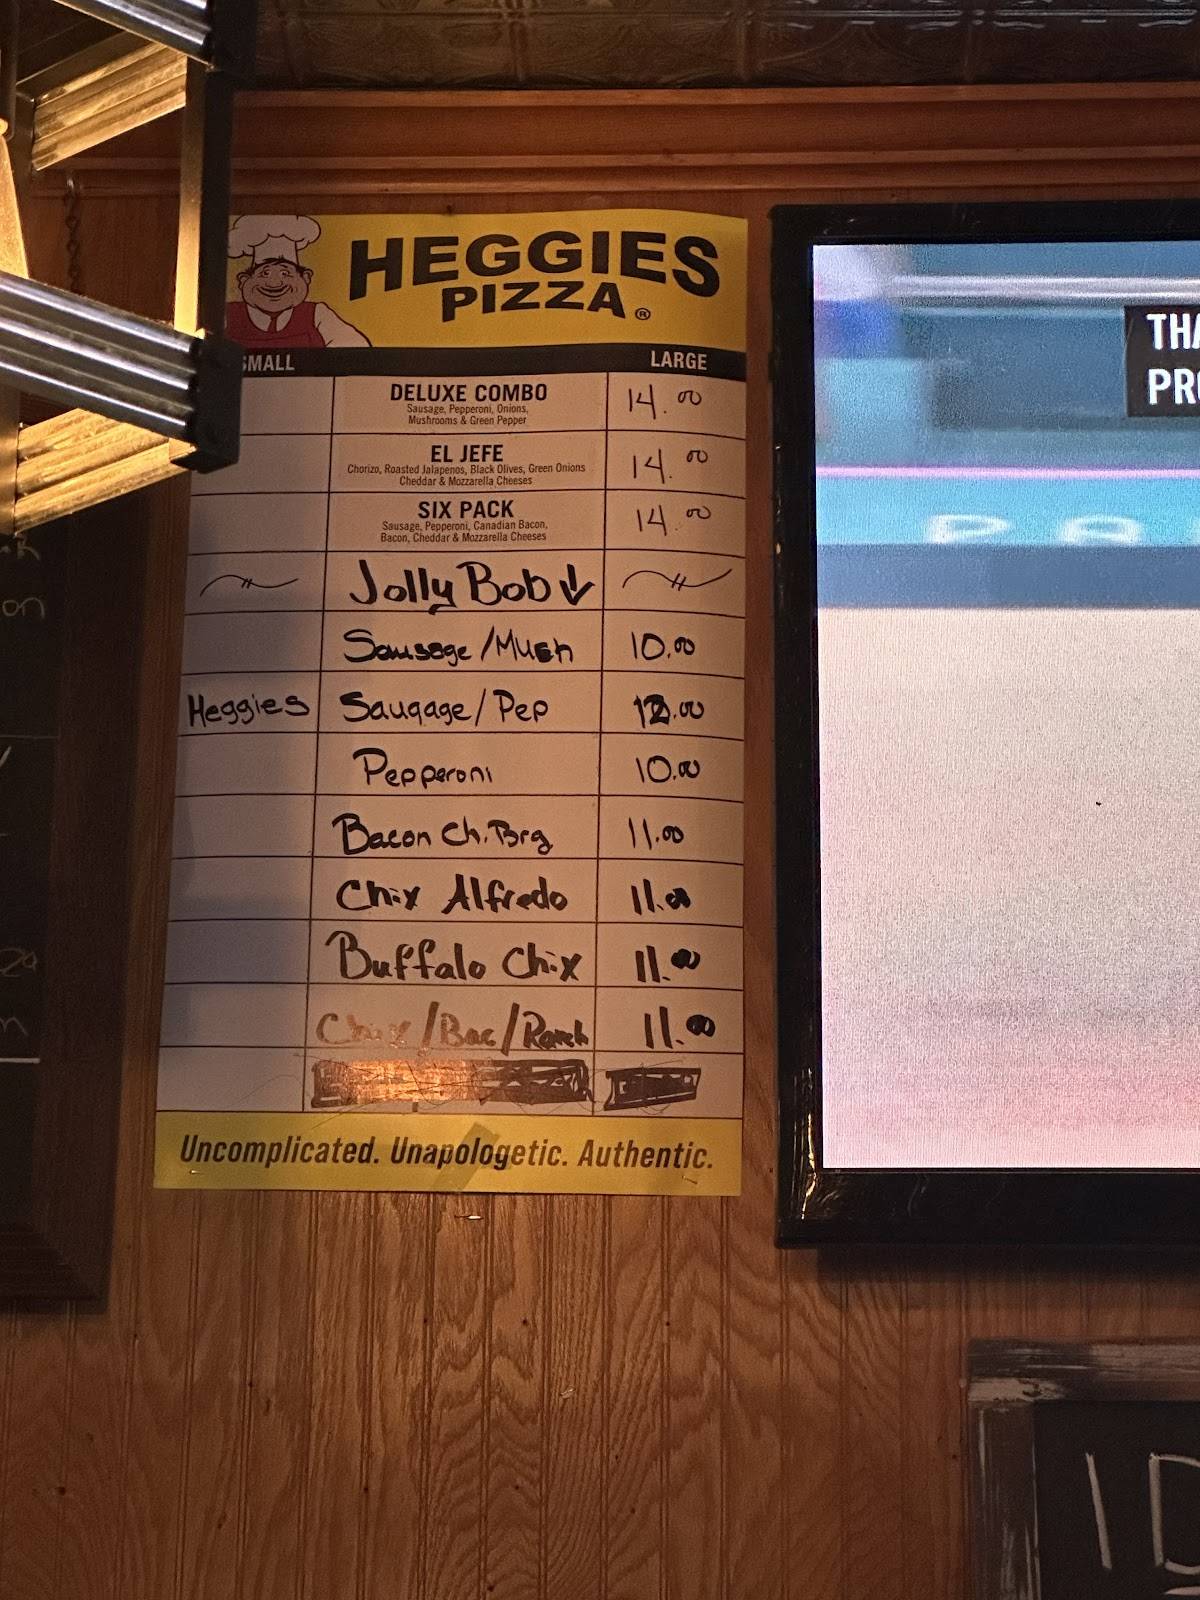 HEGGIES
PIZZA®
SMALL LARGE
DELUXE COMBO 14.00
Sausage, Pepperoni, Onions,
Mushrooms & Green Pepper
EL JEFE 14.00
Chorizo, Roasted Jalapenos, Black Olives, Green Onions
Cheddar & Mozzarella Cheeses
SIX PACK 14.00
Sausage, Pepperoni, Canadian Bacon,
Bacon, Cheddar & Mozzarella Cheeses
Jolly Bob ↓
Sausage/Mush 10.00
Heggies Sauqage/Pep 12.00
Pepperoni 10.00
Bacon Ch. Brg 11.00
Chix Alfredo 11.00
Buffalo Chix 11.00
Chix/Bac/Ranch 11.00
Uncomplicated. Unapologetic. Authentic.
THA
PRO
P A
on
ID